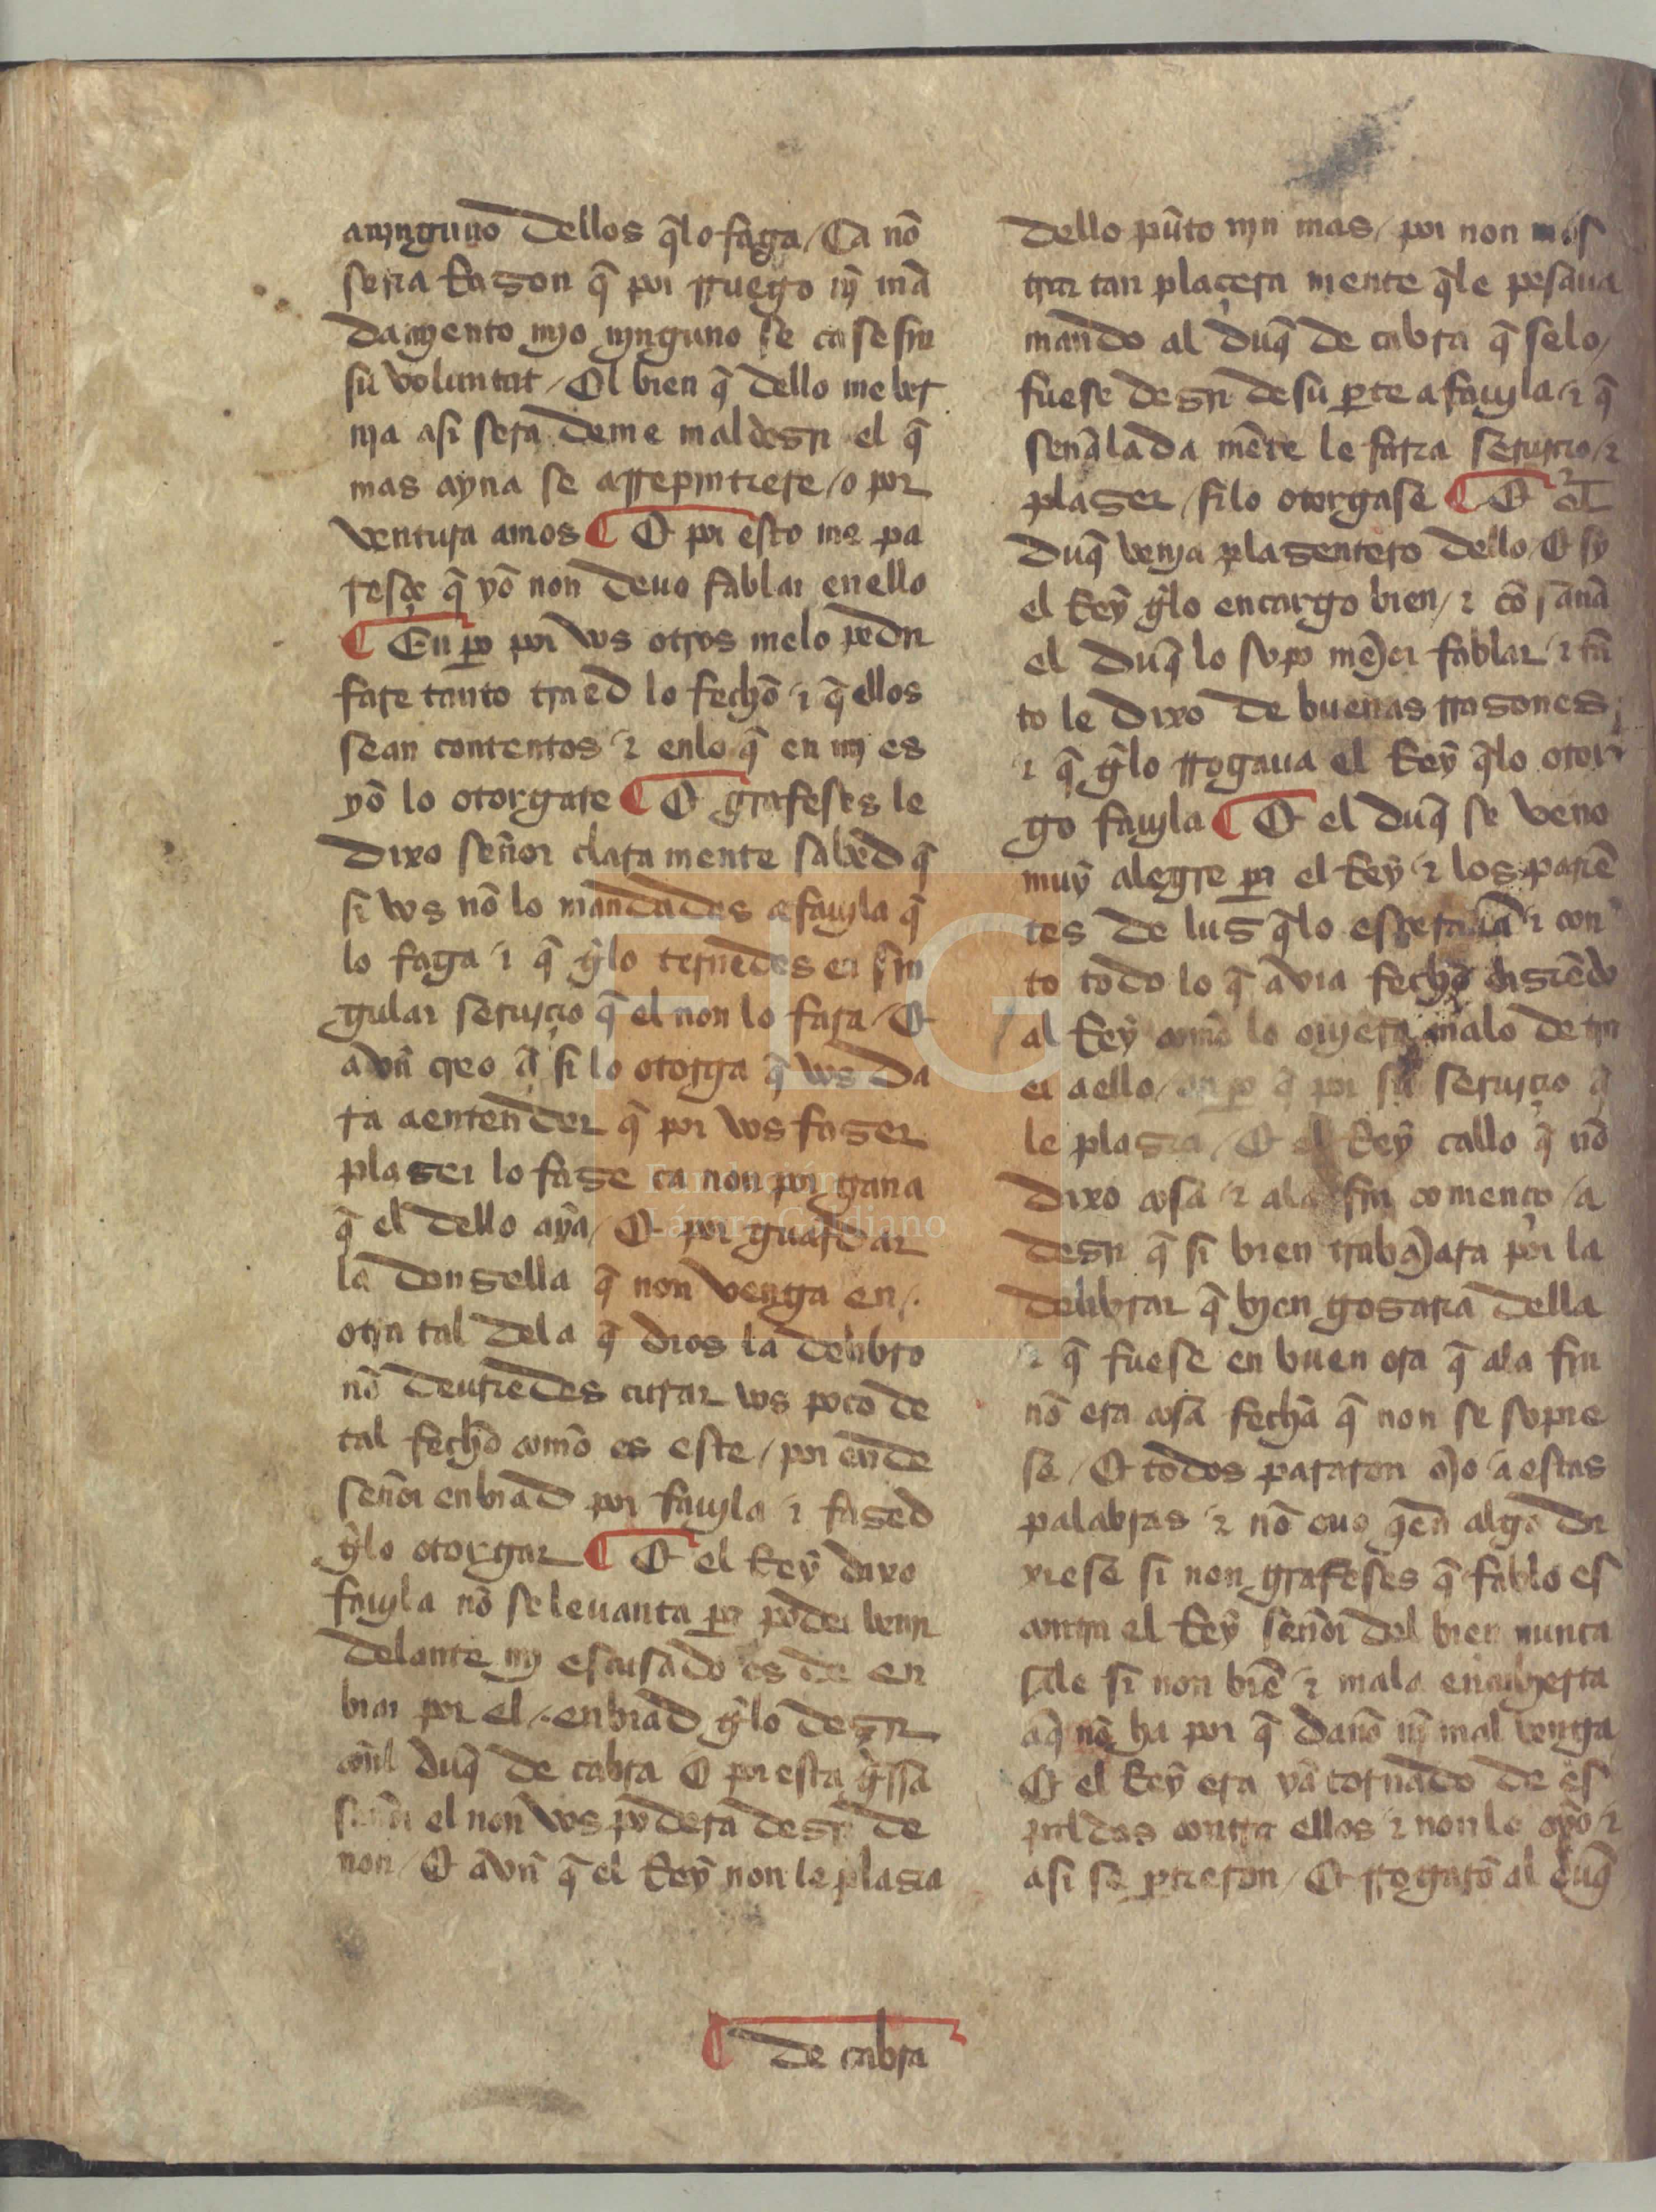 aninguno dellos q̃lo faga / Ca nõ
seria Razon q̃ por rruego nj̃ mã
damjento mjo njnguno se case sin
su voluntat / El bien q̃ dello me ver
nja asi sera de me mal dezir el q̃
mas ayna se arrepintiere / o por
ventura amos ¶ E por esto me pa
resçe q̃ yõ non deuo fablar enello
¶ En p̱o por vos otros melo pedir
fare tanto traed lo fechõ / ⁊ q̃ ellos
sean contentos / ⁊ enlo q̃ en mj es
yõ lo otorgare ¶ E grafeses le
dixo señor clara mente sabed q̃
si vos nõ lo mandades a fauila q̃
lo faga / ⁊ q̃ g̃lo ternedes en sin
gular seruiçio q̃ el non lo fara / E
avñ creo q̃ si lo otorga q̃ vos da
ra a entender q̃ por vos fazer
plazer lo faze ca non por gana
q̃ el dello aya / E por guardar
la donzella q̃ non venga en /.
otra tal dela q̃ dios la delibro
nõ deuriedes curar vos poco de
tal fechõ comõ es este / por ende
señor enbiad por fauila ⁊ fazed
g̃lo otorgar ¶ E el Rey dixo
fauila nõ se leuanta p̱a poder venir
delante mj escusado es de en
biar por el /. enbiad g̃lo dezir
conl duq̃ de cabra E por esta g̃ssa
señor el non vos podera dezir de
non / E avñ q̃ el Rey non le plazia
dello pũto njn mas / por non mos
trar tan plaçera mente q̃le pesaua
mando al duq̃ de cabra q̃ selo /
fuese dezir de su p̱te a fauila / ⁊ q̃
señalada mẽte le faria seruiçio / ⁊
plazer / si lo otorgase ¶ E el
duq̃ venja plazentero dello / E sy
el Rey g̃lo encargo bien / ⁊ cõ saña
el duq̃ lo sopo mejor fablar / ⁊ tã
to le dixo de buenas rrazones
⁊ q̃ g̃lo rrogaua el Rey q̃lo otor
go fauila ¶ E el duq̃ se veno
muy alegre p̱a el Rey / ⁊ los pariẽ
tes de luz q̃lo esperauã / ⁊ con
to todo lo q̃ avia fechõ diziẽdo
al Rey comõ lo oujera malo de tra
er a ello / en p̱o q̃ por su seruiçio q̃
le plazia / E el Rey callo q̃ nõ
dixo cosa / ⁊ ala fin começo / a
dezir q̃ si bien trabajara por la
delibrar q̃ bien gozaria della
⁊ q̃ fuese en buen ora q̃ ala fin
nõ era cosa fecha q̃ non se sopie
se / E todos pararon ojo a estas
palabras / ⁊ nõ ouo q̃en algo di
xiese si non grafeses q̃ fablo es
contra el Rey señor del bien nunca
sale si non biẽ / ⁊ mala encubierta
aq̃ nõ ha por q̃ daño nj̃ mal venga
E el Rey era yã tornado de es
paldas contra ellos / ⁊ non lo oyo / ⁊
asi se p̱tieron / E rrogarõ al duq̃
¶ de cabra
FLG
Fundación
Lázaro Galdiano